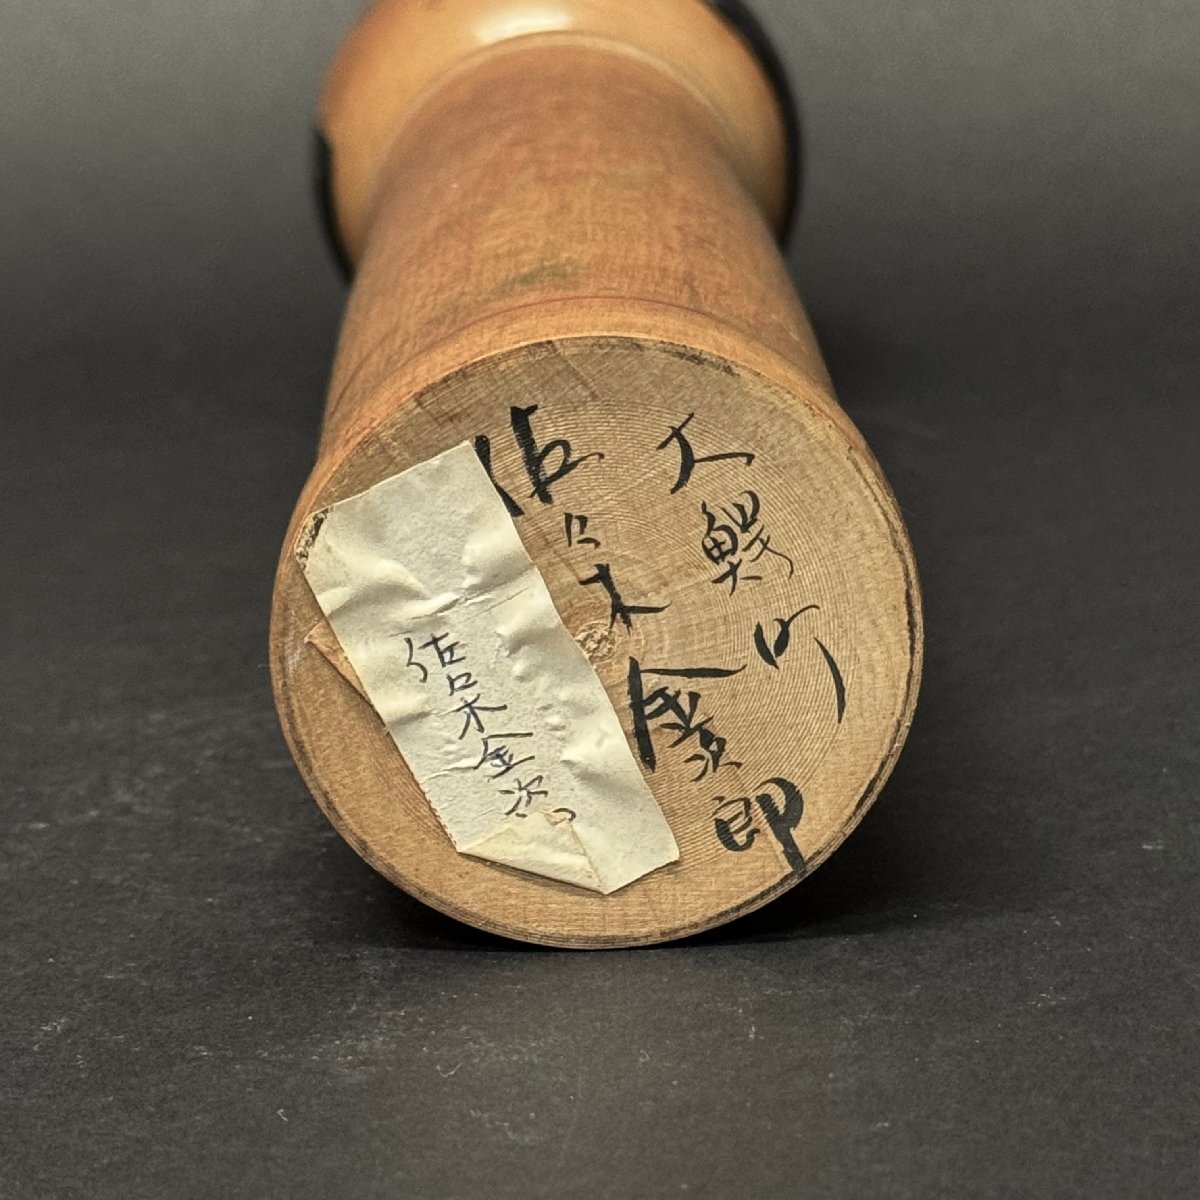 大鰐町
佐々木金次郎
佐々木金次郎